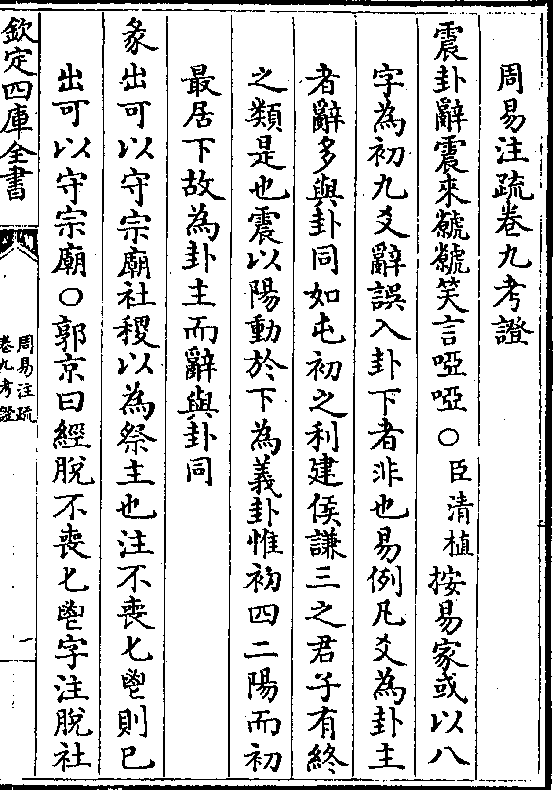 周易注疏卷九考證
震卦辭震來虩虩笑言啞啞〇臣清植按易家或以八
字為初九爻辭誤入卦下者非也易例凡爻為卦主
者辭多與卦同如屯初之利建侯謙三之君子有終
之類是也震以陽動於下為義卦惟初四二陽而初
最居下故為卦主而辭與卦同
彖出可以守宗廟社稷以為祭主也注不喪匕鬯則已
出可以守宗廟〇郭京曰經脫不喪匕鬯字注脫社
欽定四庫全書
周易注疏
卷九考證
一